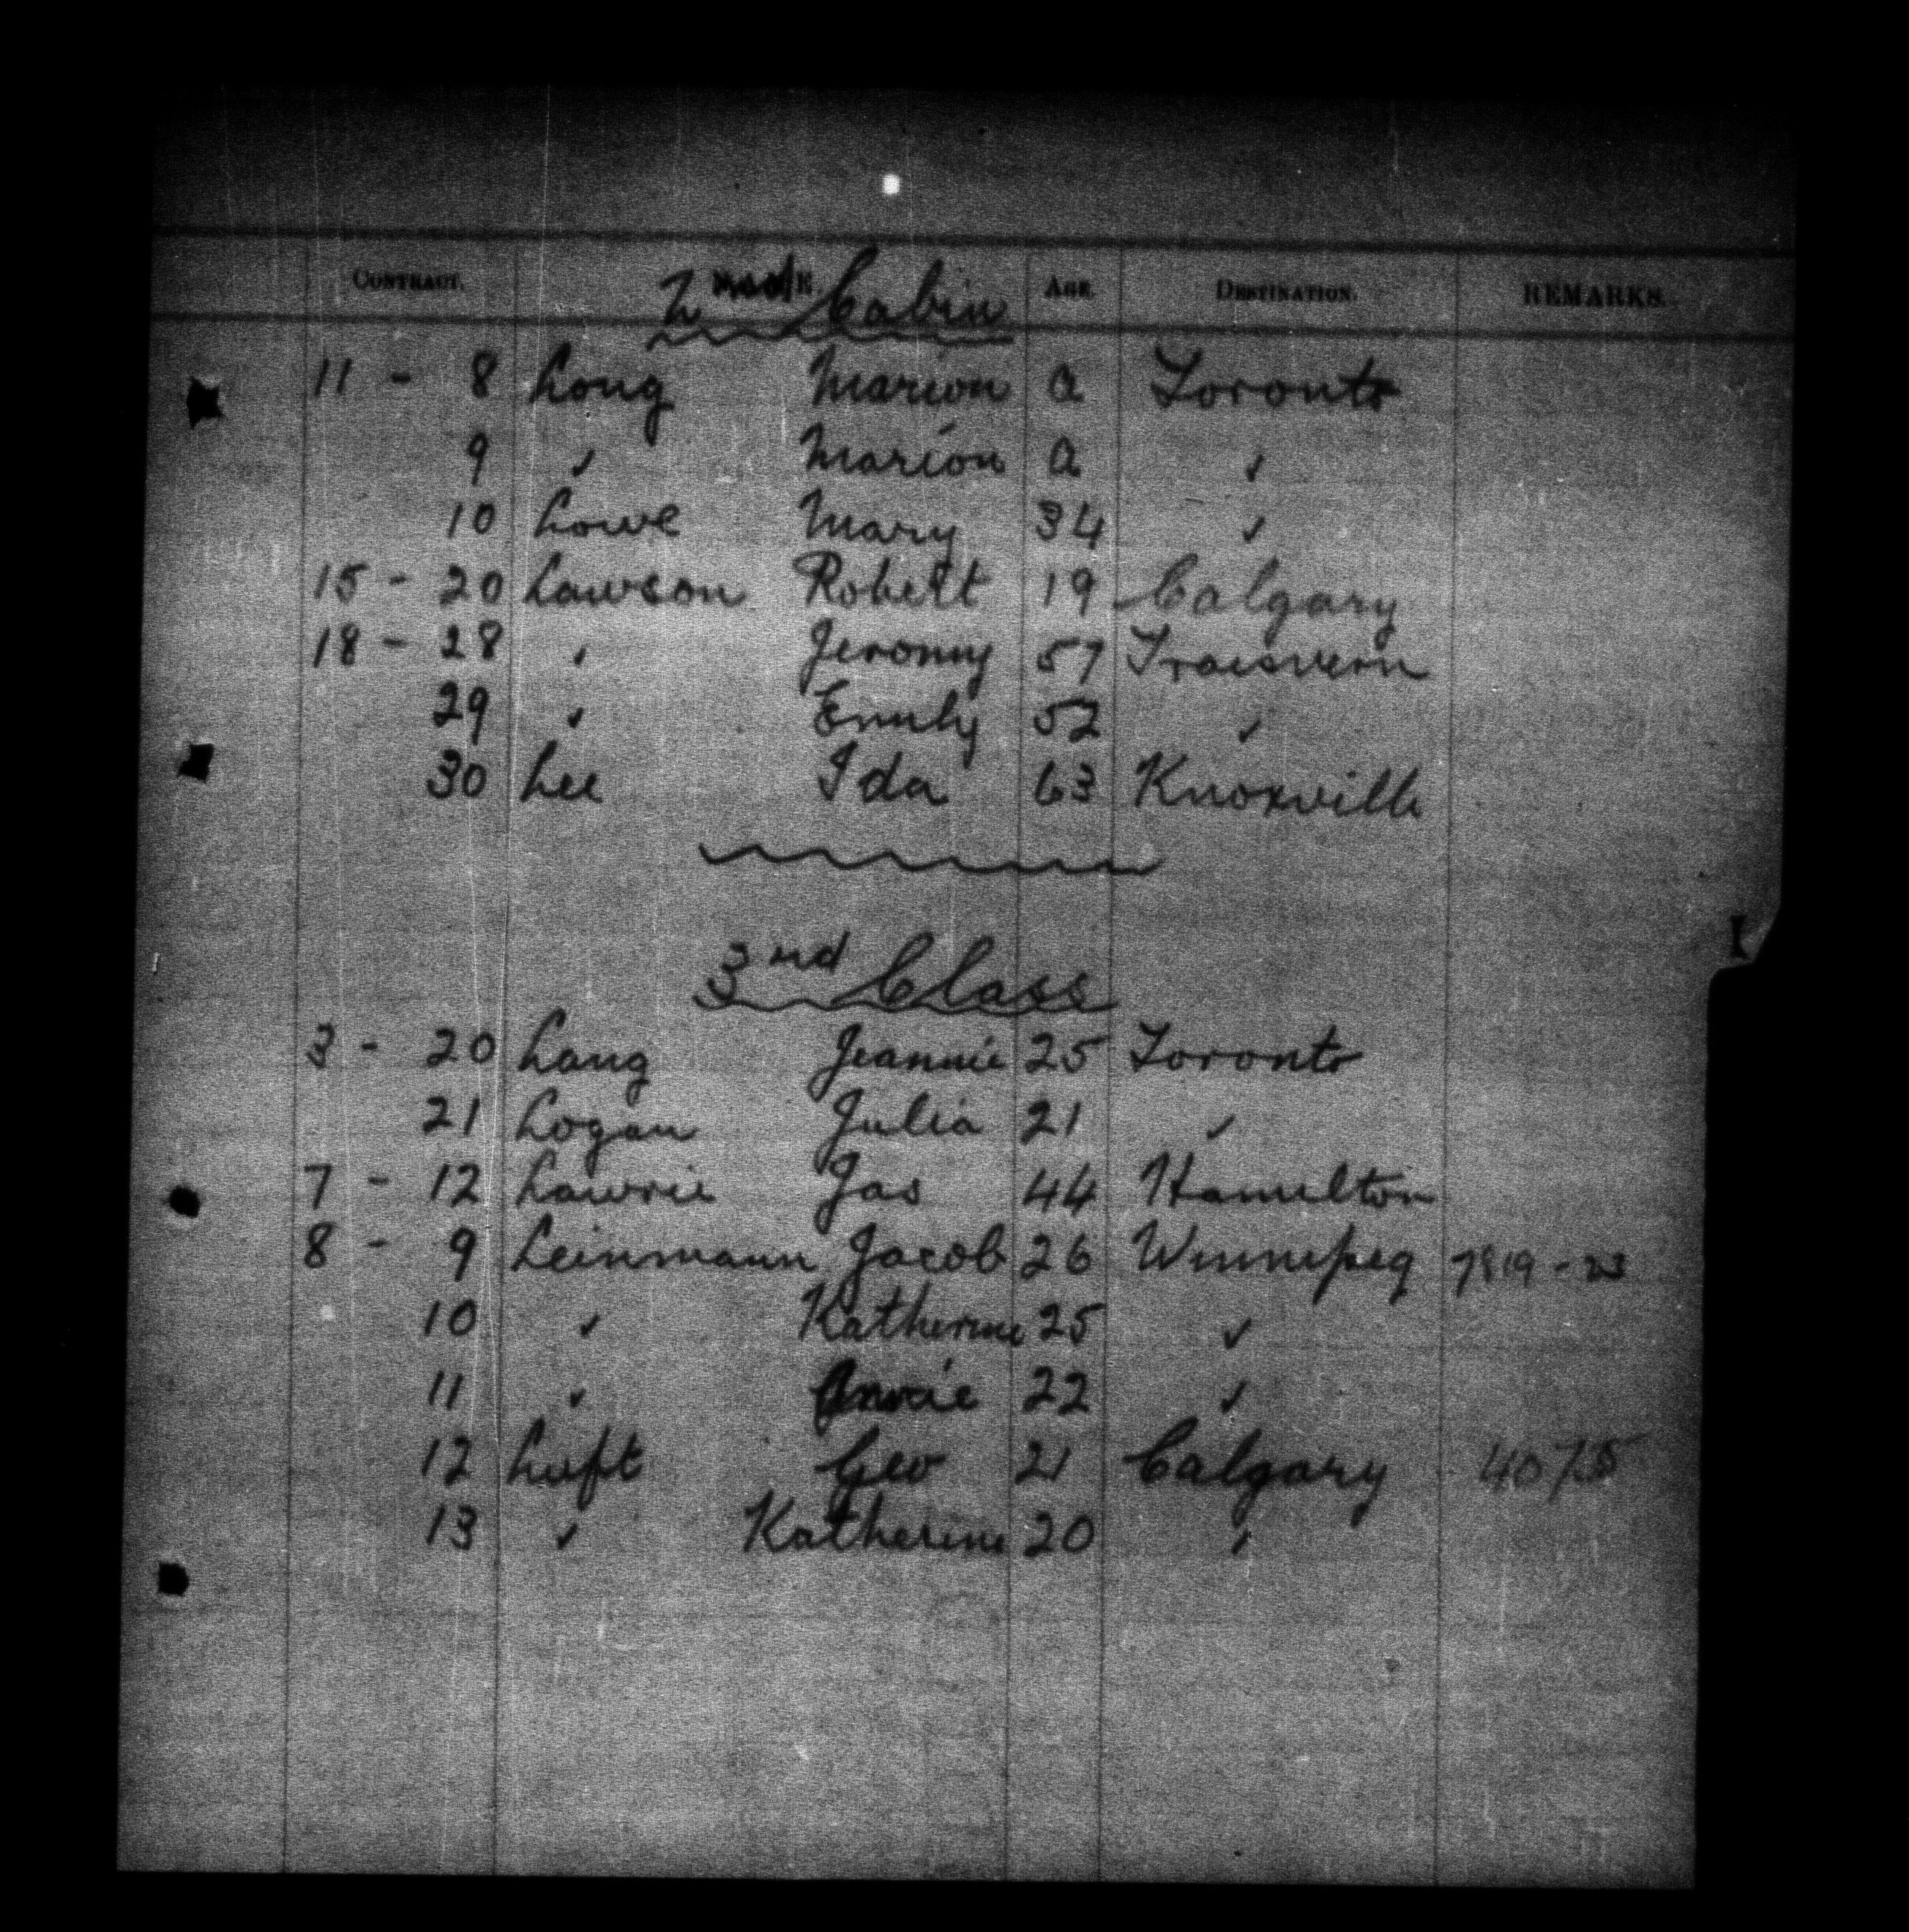 CONTRACT. NAME. AGE. DESTINATION. REMARKS.
2nd Cabin
11 - 8 Long Marion a Toronto
9 ✓ Marion a ✓
10 Lowe Mary 34 ✓
15 - 20 Lawson Robert 19 Calgary
18 - 28 ✓ Jeromy 57
29 ✓ Emily 52 ✓
30 Lee Ida 63 Knoxville
3nd Class
3 - 20 Lang Jeannie 25 Toronto
21 Logan Julia 21 ✓
7 - 12 Lawrie Jas 44 Hamilton
8 - 9 Leinmann Jacob 26 Winnipeg 7819 - 23
10 ✓ Katherine 25 ✓
11 ✓ Annie 22 ✓
12 Luft Geo 21 Calgary 4075
13 ✓ Katherine 20 ✓